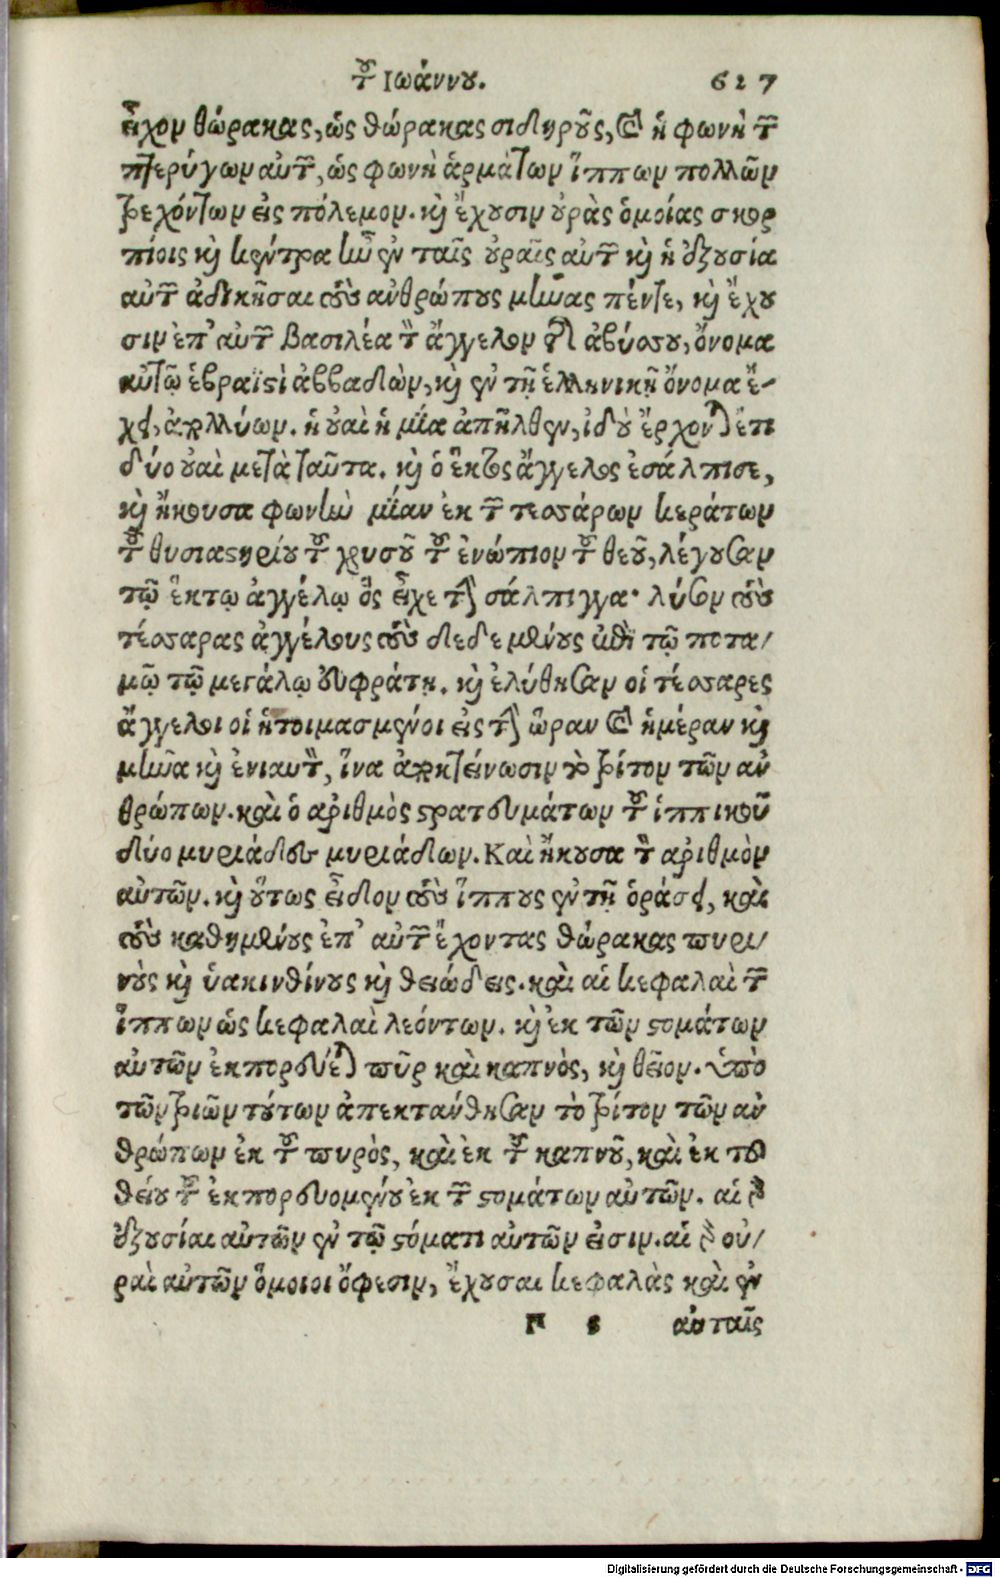 τοῦ Ἰωάννου. 627
εἶχον θώρακας, ὡς θώρακας σιδηροῦς, καὶ ἡ φωνὴ τῶν
πτερύγων αὐτῶν, ὡς φωνὴ ἁρμάτων ἵππων πολλῶν
τρεχόντων εἰς πόλεμον. καὶ ἔχουσιν οὐρὰς ὁμοίας σκορ
πίοις καὶ κέντρα ἦν ἐν ταῖς οὐραῖς αὐτῶν καὶ ἡ ἐξουσία
αὐτῶν ἀδικῆσαι τοὺς ἀνθρώπους μῆνας πέντε, καὶ ἔχου
σιν ἐπ' αὐτῶν βασιλέα τὸν ἄγγελον τῆς ἀβύσσου, ὄνομα
αὐτῷ ἑβραϊστὶ ἀββαδὼν, καὶ ἐν τῇ ἑλληνικῇ ὄνομα ἔ-
χει, ἀπολλύων. ἡ οὐαὶ ἡ μία ἀπῆλθεν, ἰδοὺ ἔρχονται ἔτι
δύο οὐαὶ μετὰ ταῦτα. καὶ ὁ ἕκτος ἄγγελος ἐσάλπισε,
καὶ ἤκουσα φωνὴν μίαν ἐκ τῶν τεσσάρων κεράτων
τοῦ θυσιαστηρίου τοῦ χρυσοῦ τοῦ ἐνώπιον τοῦ θεοῦ, λέγουσαν
τῷ ἕκτῳ ἀγγέλῳ ὃς εἶχε τὴν σάλπιγγα· λύσον τοὺς
τέσσαρας ἀγγέλους τοὺς δεδεμένους ἐπὶ τῷ ποτα/
μῷ τῷ μεγάλῳ εὐφράτῃ. καὶ ἐλύθησαν οἱ τέσσαρες
ἄγγελοι οἱ ἡτοιμασμένοι εἰς τὴν ὥραν καὶ ἡμέραν καὶ
μῆνα καὶ ἐνιαυτὸν, ἵνα ἀποκτείνωσιν τὸ τρίτον τῶν ἀν
θρώπων. καὶ ὁ ἀριθμὸς στρατευμάτων τοῦ ἱππικοῦ
δύο μυριάδες μυριάδων. Καὶ ἤκουσα τὸν ἀριθμὸν
αὐτῶν. καὶ οὕτως εἶδον τοὺς ἵππους ἐν τῇ ὁράσει, καὶ
τοὺς καθημένους ἐπ' αὐτῶν ἔχοντας θώρακας πυρι/
νοὺς καὶ ὑακινθίνους καὶ θειώδεις. καὶ αἱ κεφαλαὶ τῶν
ἵππων ὡς κεφαλαὶ λεόντων. καὶ ἐκ τῶν στομάτων
αὐτῶν ἐκπορεύεται πῦρ καὶ καπνὸς, καὶ θεῖον. ὑπὸ
τῶν τριῶν τούτων ἀπεκτάνθησαν τὸ τρίτον τῶν ἀν
θρώπων ἐκ τοῦ πυρὸς, καὶ ἐκ τοῦ καπνοῦ, καὶ ἐκ τοῦ
θείου τοῦ ἐκπορευομένου ἐκ τῶν στομάτων αὐτῶν. αἱ γὰρ
ἐξουσίαι αὐτῶν ἐν τῷ στόματι αὐτῶν εἰσιν. αἱ γὰρ οὐ/
ραὶ αὐτῶν ὅμοιοι ὄφεσιν, ἔχουσαι κεφαλὰς καὶ ἐν
αὐταῖς
Digitalisierung gefördert durch die Deutsche Forschungsgemeinschaft - DFG